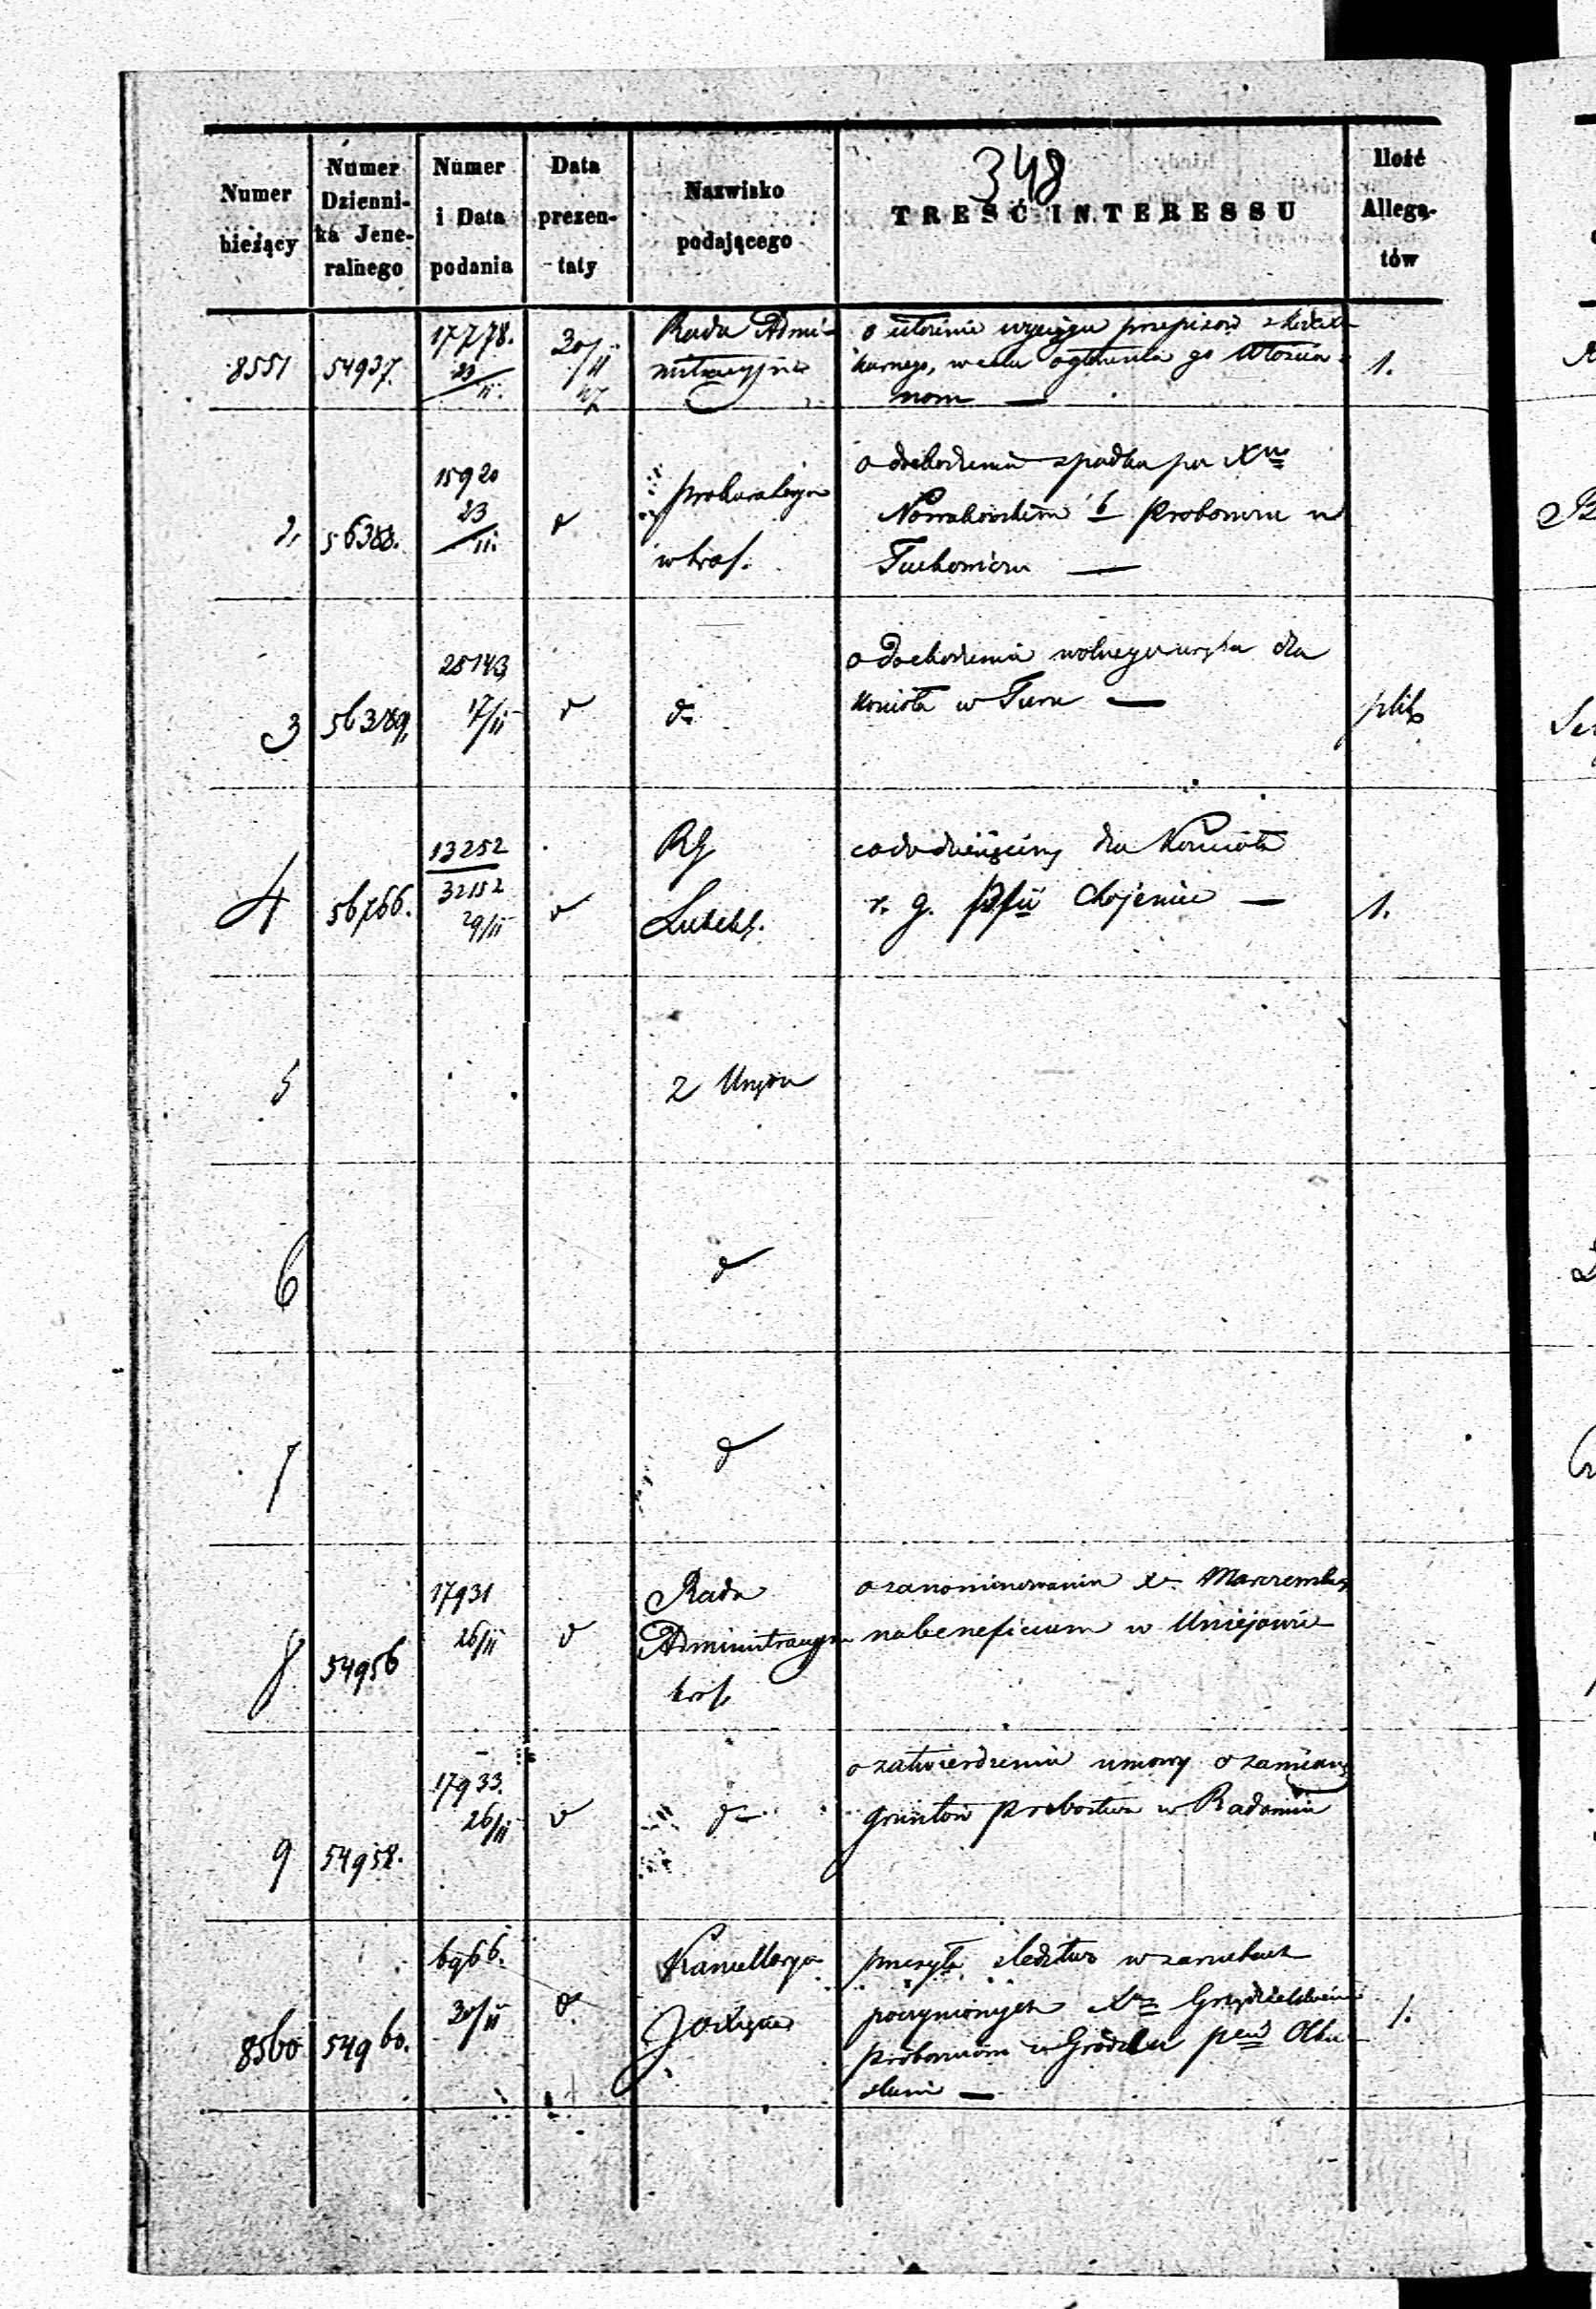 348
Numer bieżący
Numer Dzienni- ka Jene- ralnego
Numer i Data podania
Data prezen- taty
Nazwisko podającego
TREŚĆ INTERESSU
Ilość Allega- tów
8551 54937. 17778. 23/11. 30/11 47 Rada Admi-
nistracyjna
o ułożenie wyciągu przepisów
karnego, w celu ogłoszenia go Włościa-
nom — 1.
2, 56388. 15920 23/11. d Prokuratorya
w kraj.
o dochodzenia spadku po Xdzu
Nowakowskim Proboszczu w
Tuchowiczu —
3 56389, 25143 17/11 d d-
o dochodzenia wolnego wrębu dla
kościoła w Turu — plik
4 56766. 13252 32152 29/11 d RG
Lubels.
co do dziesięciny dla Kościoła
r. g. Chojeniec — 1.
5 z Urzędu
6 d
7 d
8 54956 17931 26/11 d Rada
Administracyjna
król.
o zanominowanie X.
na beneficium w Uniejowie
9 54958. 17933. 26/11 d d-
o zatwierdzenie umowy o zamianę
gruntów probostwa w Radominie
8560 54960. 6966. 30/11 d Kancellarya
przesyła śledztwo w zarzutach
poczynionych Xdzu
proboszczowi w Grodzcu Olku-
skim — 1.